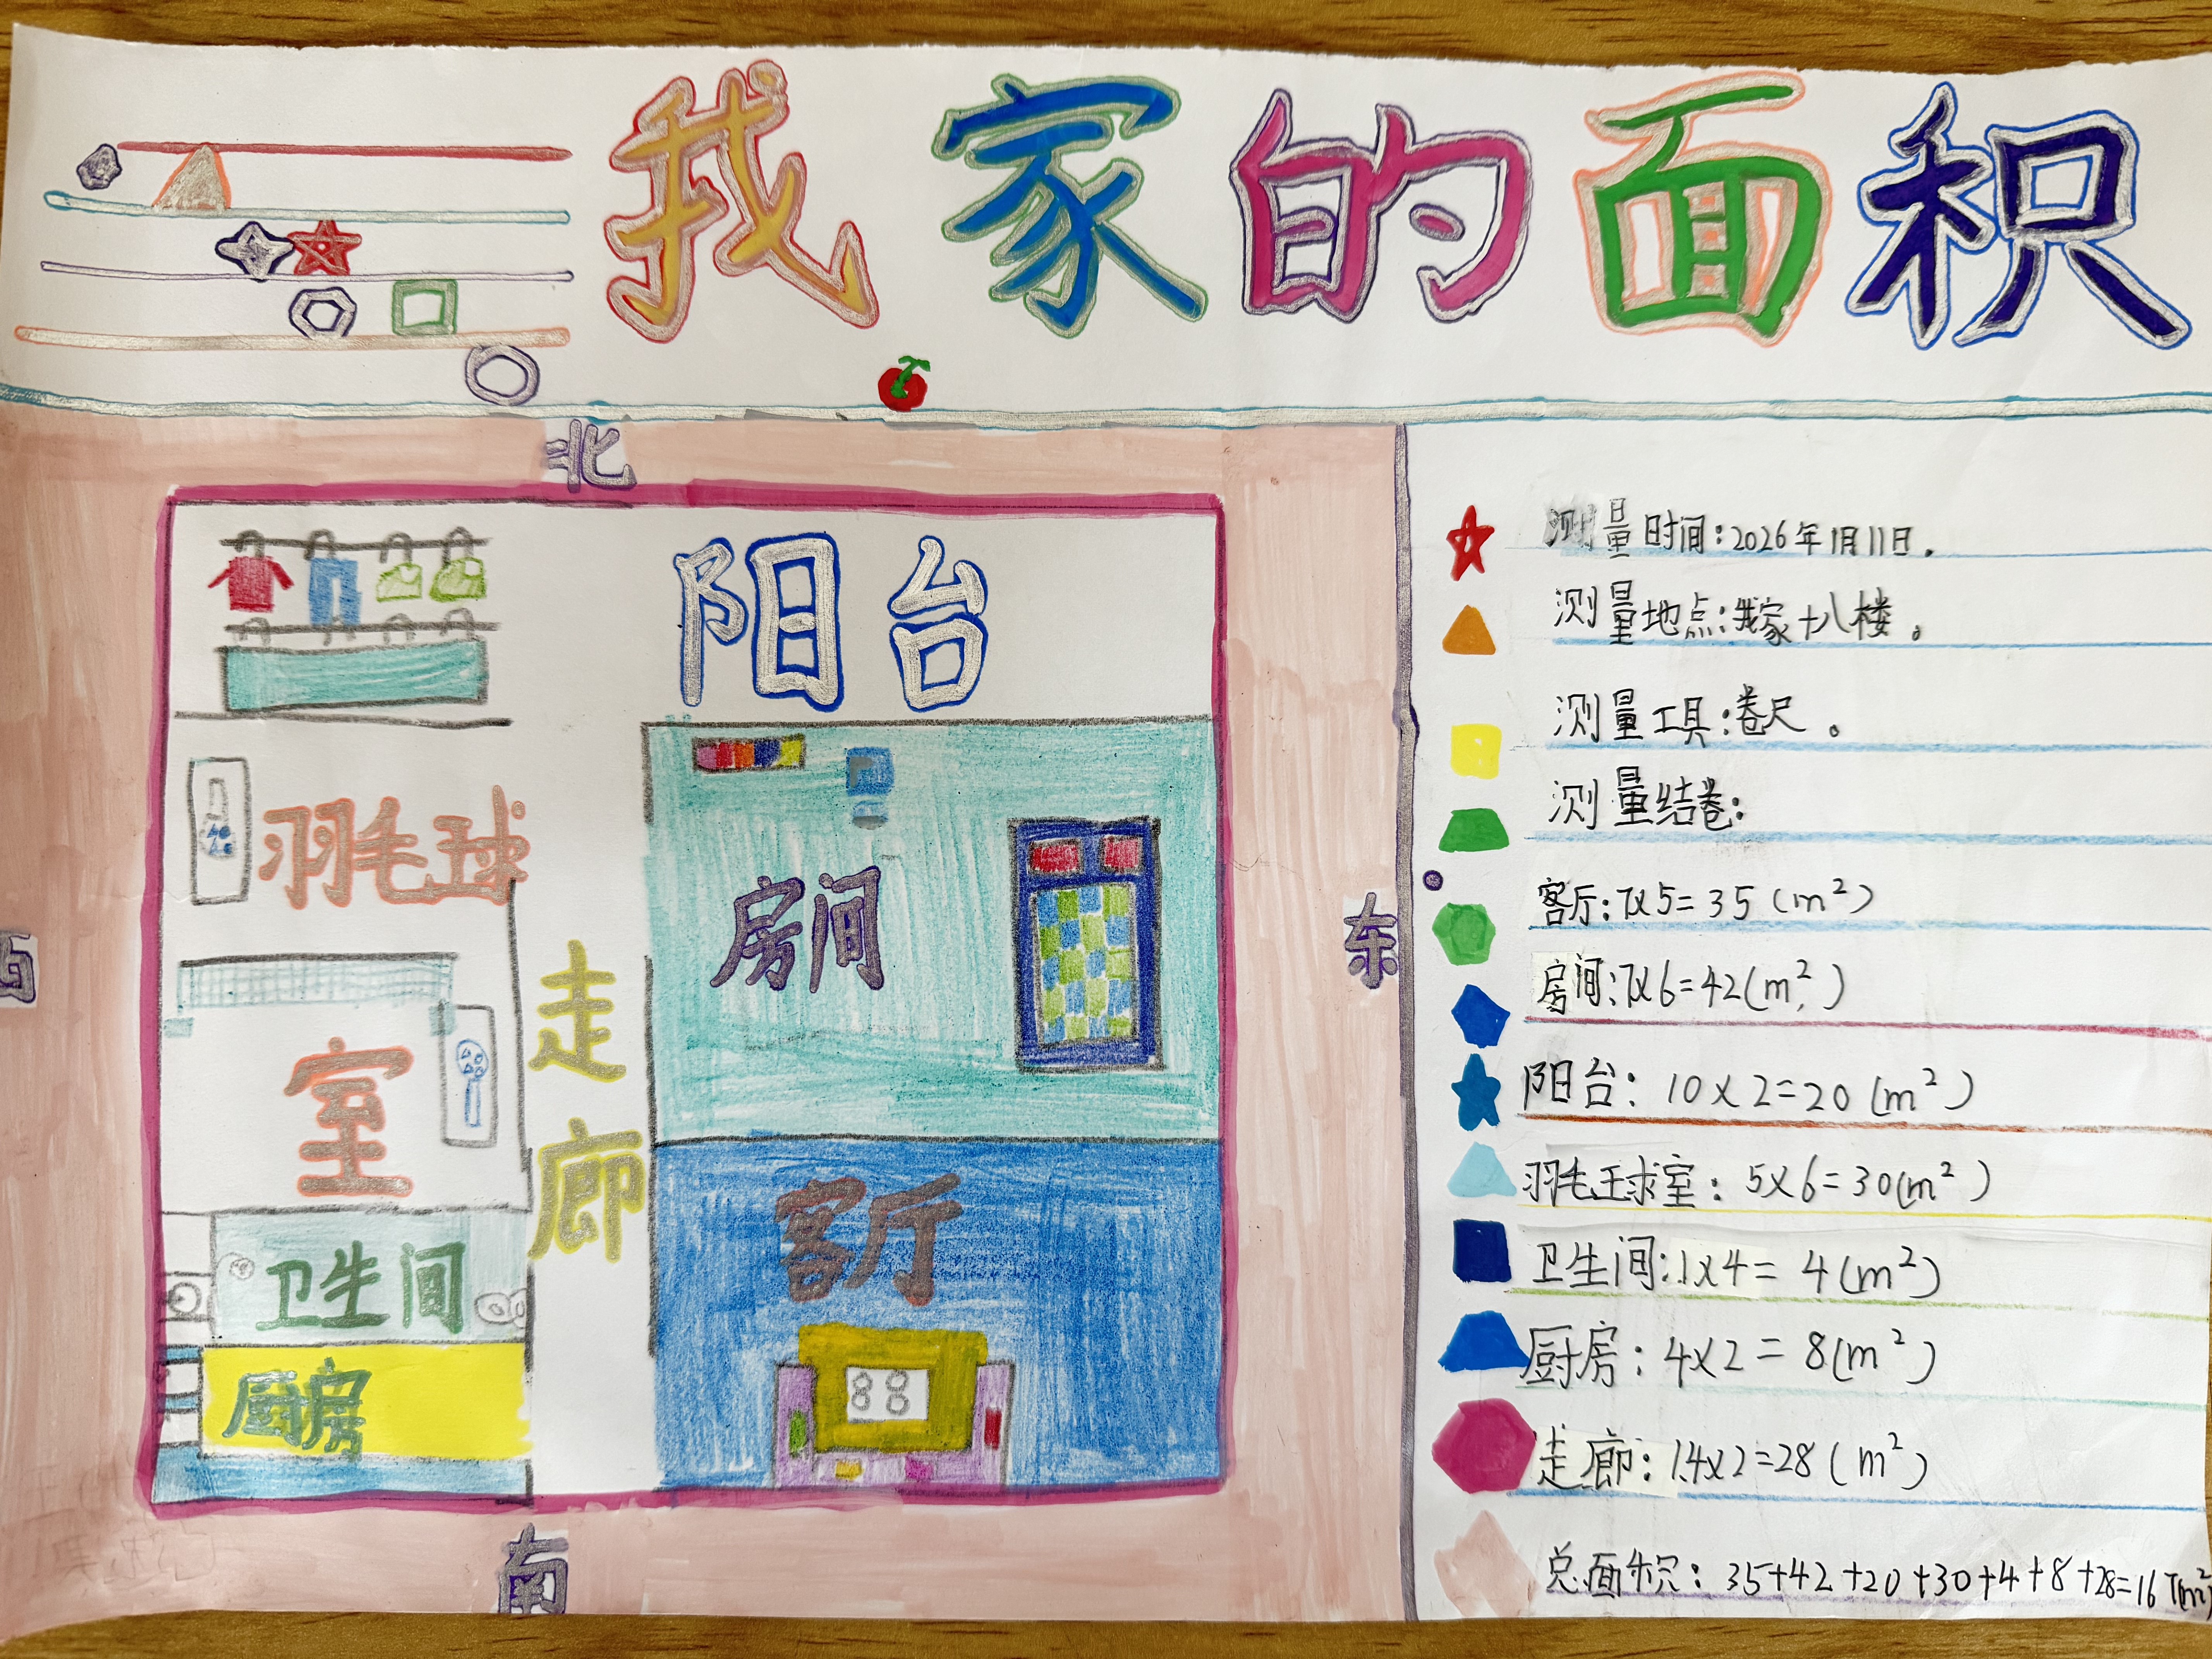 我家的面积
北
阳台
羽毛球
室
房间
走
廊
东
卫生间
客厅
厨房
88
南
测量时间:2026年1月11日.
测量地点:我家十八楼。
测量工具:卷尺。
测量结卷:
客厅:7x5=35(m²)
房间:7x6=42(m²)
阳台:10x2=20(m²)
羽毛球室:5x6=30(m²)
卫生间:1x4=4(m²)
厨房:4x2=8(m²)
走廊:14x2=28(m²)
总面积:35+42+20+30+4+8+28=167(m²)